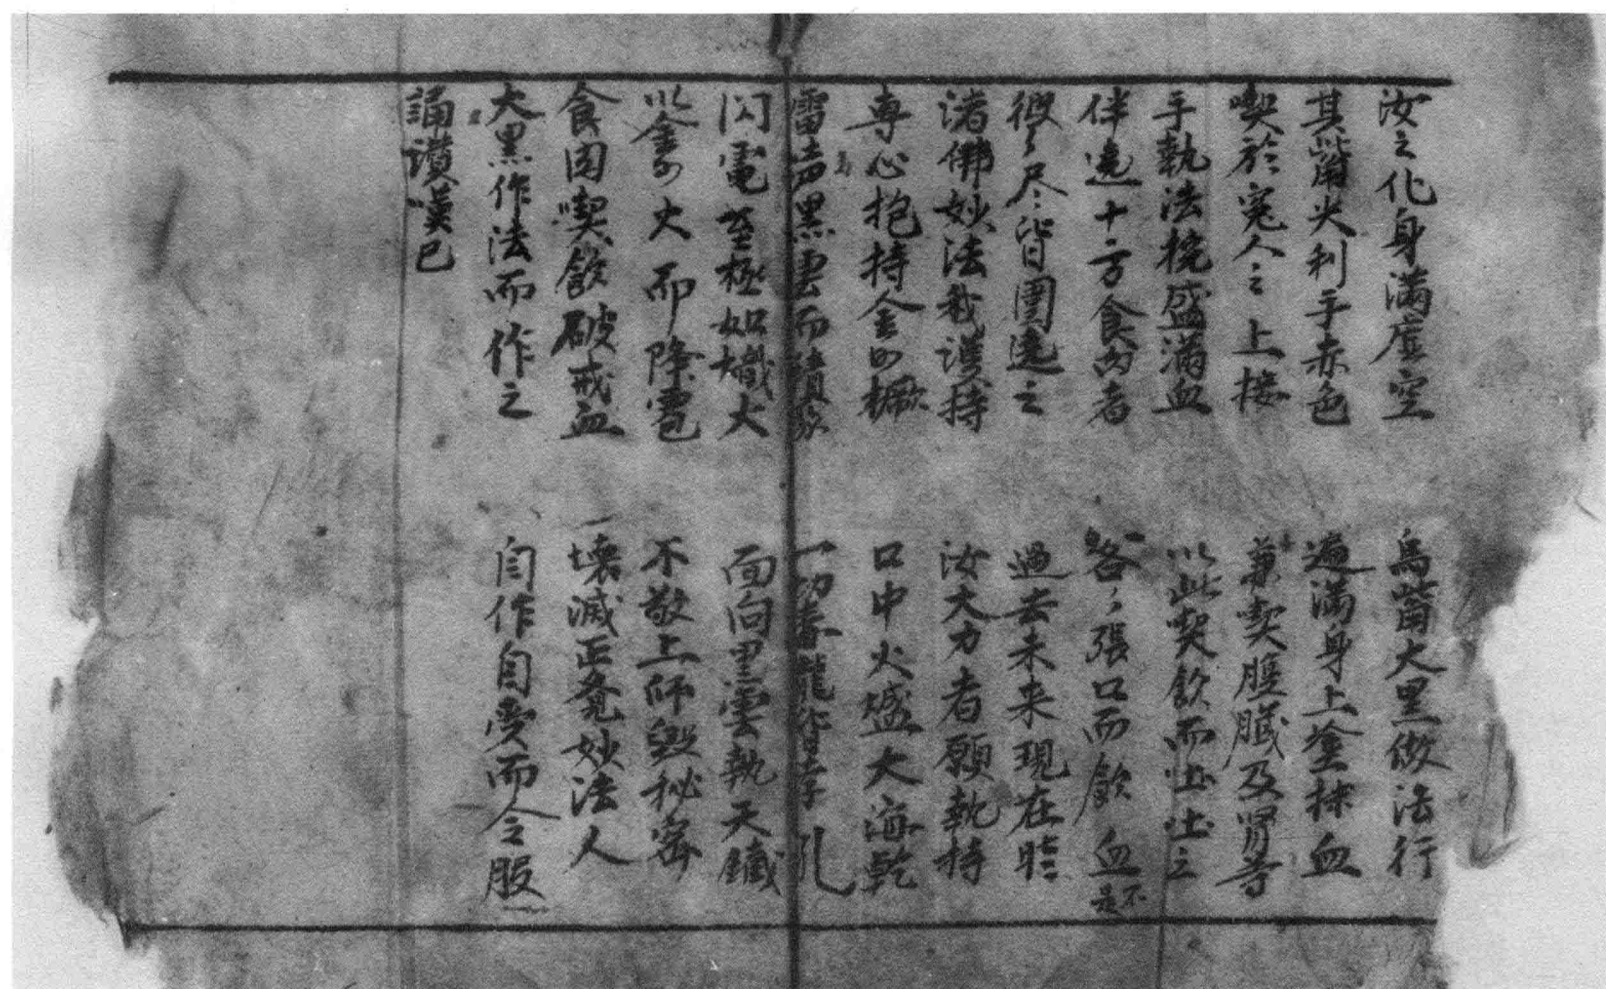 汝之化身滿虛空　烏觜大黑做法行
其觜尖利手赤色　遍滿身上塗抹血
喫於冤人之上接　兼喫腹臟及腎等
手執法椀盛滿血　以此喫飲而出之
伴遶十方食肉者　各〻張口而飲血 不是
彼〻尽皆圍遶之　過去未来現在時
諸佛妙法我護持　汝大力者願執持
專心抱持金剛橛　口中火盛大海乾
雷声黑雲而　一切毒龍皆
閃電至極如熾火　面向黑雲執天鐵
以金大而降雹　不敬上师毀秘密
食肉喫飲破戒血　壞滅正覺妙法人
大黑作法而作之　自作自受而令服
誦讚嘆已